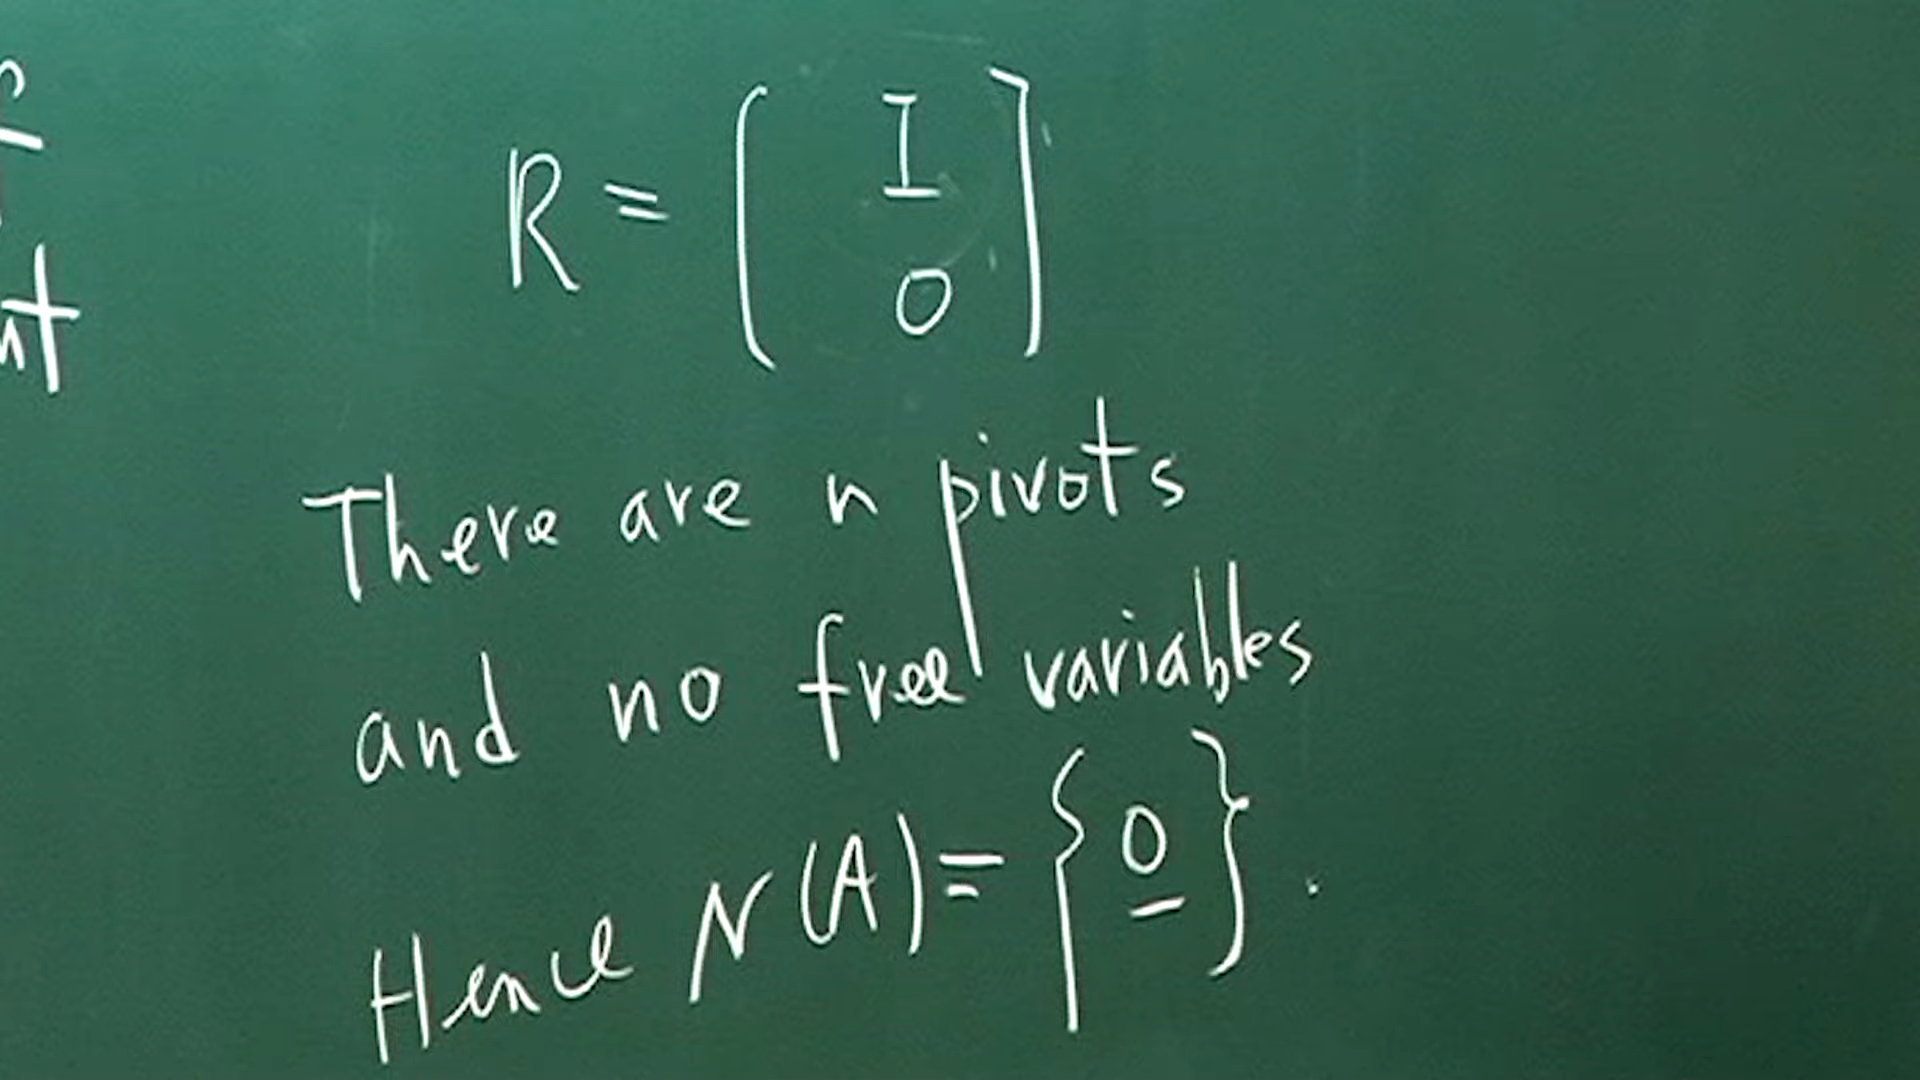 R = [ I
0 ]
There are n pivots
and no free variables
Hence N(A) = {0}.